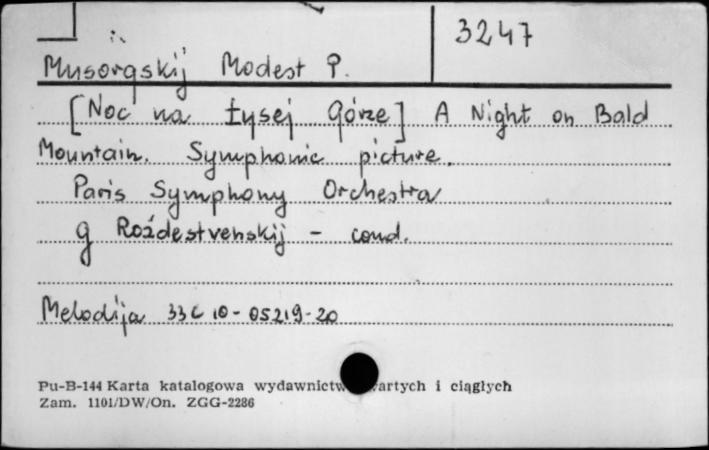 3247
Musorgskij Modest P.
[Noc na Łysej Górze] A Night on Bald
Mountain. Symphonic picture.
Paris Symphony Orchestra
G Roźdestvenskij - cond.
Melodija 33C 10-05219-20
Pu-B-144 Karta katalogowa i ciągłych
Zam. 1101/DW/On. ZGG-2286